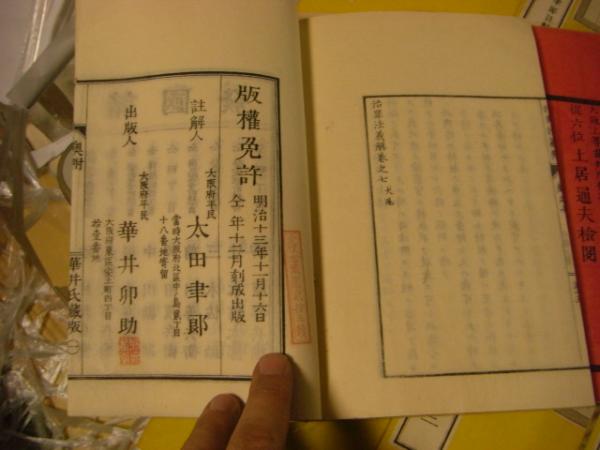 從六位 土居通夫 檢閱
治罪法義解卷之七 大尾
版權免許
明治十三年十一月十六日
仝 年十二月刻成出版
註解人
大阪府平民
太田聿郎
當時大阪府北區中ノ島貳丁目
十八番地寄留
出版人
大阪府平民
華井卯助
大阪府東區
四丁目
拾壹番地
奥附
華井氏藏版